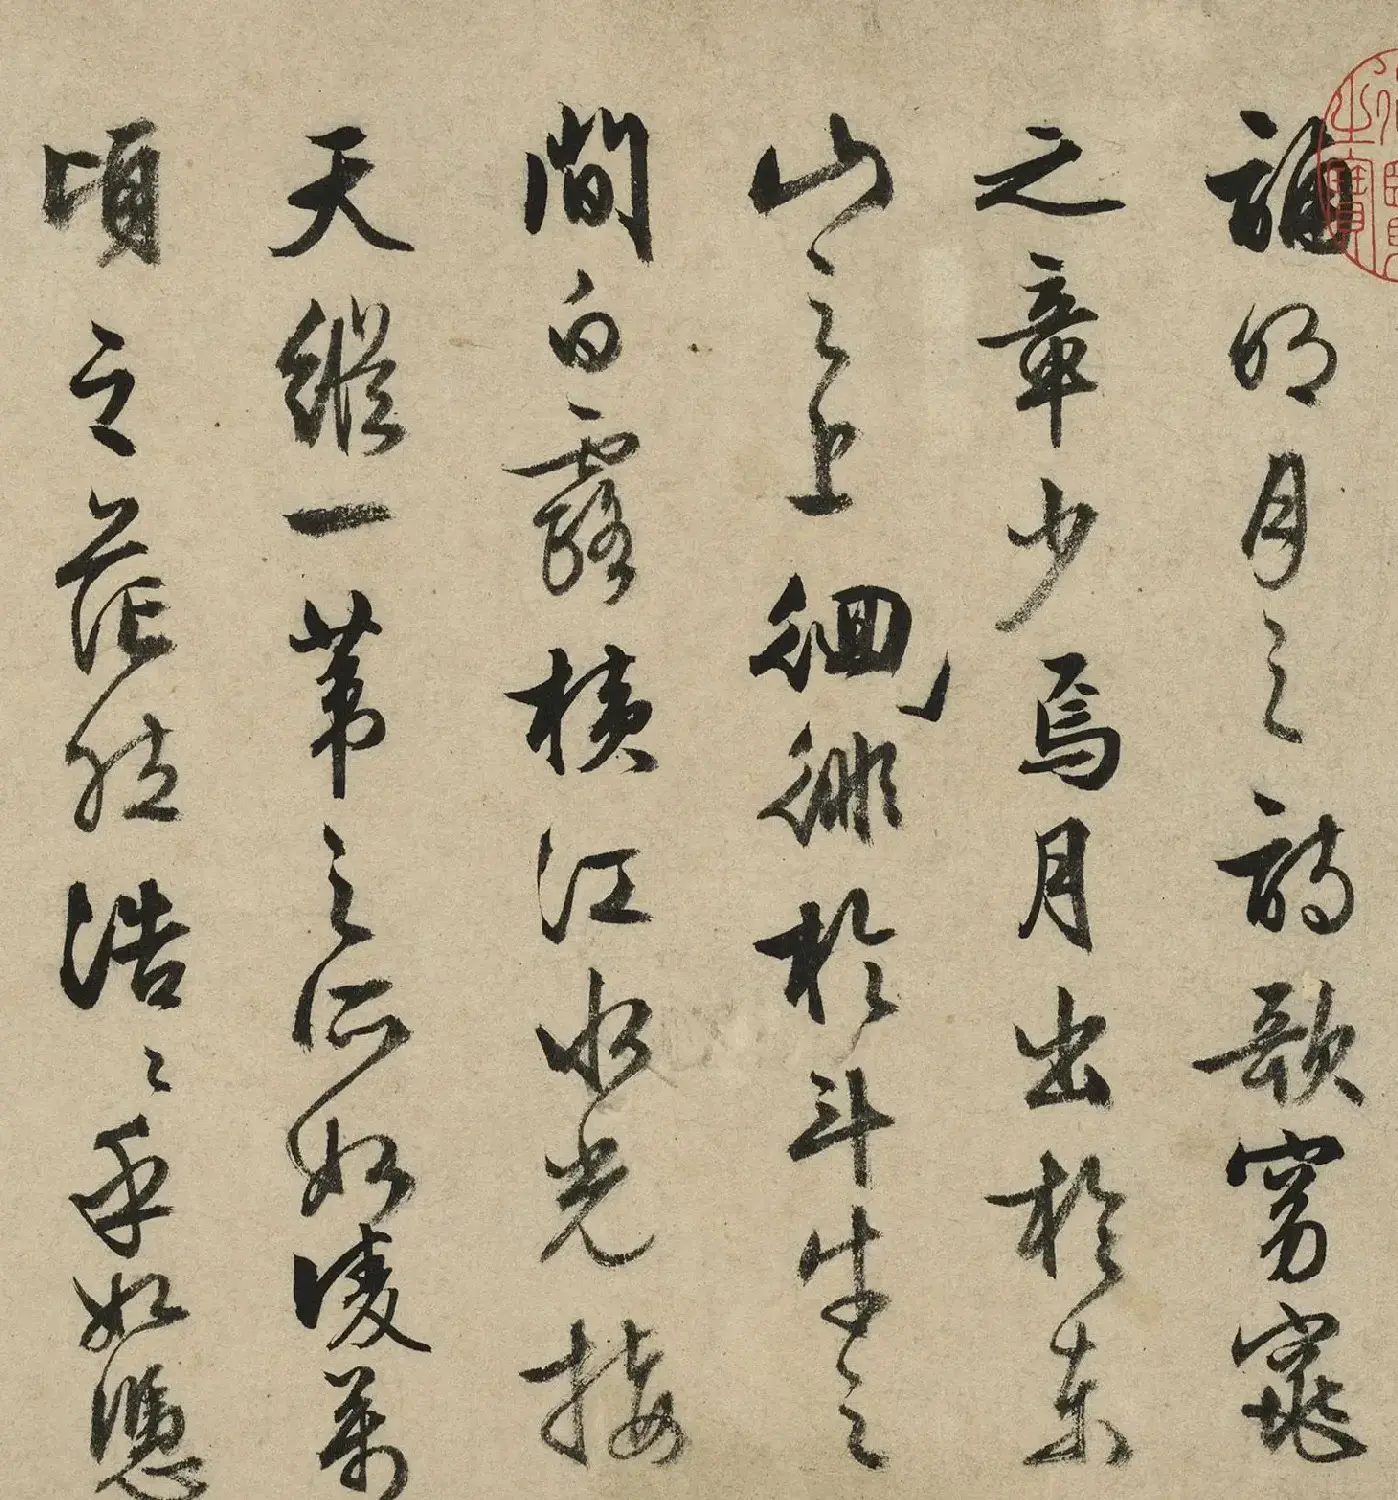 誦明月之詩歌窈窕
之章少焉月出於東
山之上徊徘於斗牛之
間白露横江水光接
天縱一葦之所如凌萬
頃之茫然浩〻乎如馮